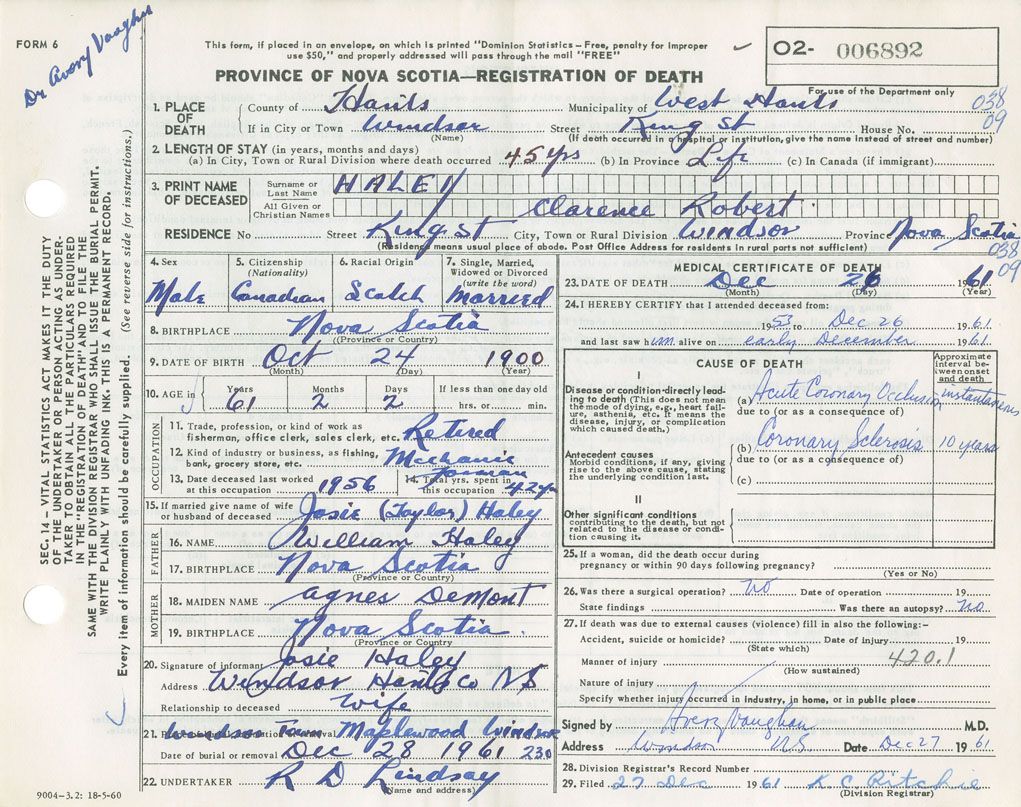 Dr Avery Vaughn
FORM 6
This form, if placed in an envelope, on which is printed "Dominion Statistics – Free, penalty for improper
use $50," and properly addressed will pass through the mail "FREE"
02- 006892
PROVINCE OF NOVA SCOTIA—REGISTRATION OF DEATH
For use of the Department only
038
09
1. PLACE OF DEATH
County of Hants Municipality of West Hants
If in City or Town Windsor Street King St House No.
(Name) (If death occurred in a hospital or institution, give the name instead of street and number)
2. LENGTH OF STAY (in years, months and days)
(a) In City, Town or Rural Division where death occurred 45 yrs (b) In Province Life (c) In Canada (if immigrant)
3. PRINT NAME OF DECEASED
Surname or Last Name HALEY
All Given or Christian Names Clarence Robert
RESIDENCE No Street King St City, Town or Rural Division Windsor Province Nova Scotia
(Residence means usual place of abode. Post Office Address for residents in rural parts not sufficient)
038
09
4. Sex Male
5. Citizenship (Nationality) Canadian
6. Racial Origin Scotch
7. Single, Married, Widowed or Divorced (write the word) Married
8. BIRTHPLACE Nova Scotia
(Province or Country)
9. DATE OF BIRTH Oct 24 1900
(Month) (Day) (Year)
10. AGE in Years 61 Months 2 Days 2 If less than one day old
hrs. or min.
OCCUPATION
11. Trade, profession, or kind of work as
fisherman, office clerk, sales clerk, etc. Retired
12. Kind of industry or business, as fishing,
bank, grocery store, etc. Mechanic
Forman
13. Date deceased last worked
at this occupation 1956
14. Total yrs. spent in
this occupation 42 yrs
15. If married give name of wife
or husband of deceased Josie (Taylor) Haley
FATHER
16. NAME William Haley
17. BIRTHPLACE Nova Scotia
(Province or Country)
MOTHER
18. MAIDEN NAME Agnes DeMont
19. BIRTHPLACE Nova Scotia
(Province or Country)
20. Signature of informant Josie Haley
Address Windsor Hants Co NS
Relationship to deceased Wife
21. Windsor Town Maplewood Windsor
Date of burial or removal Dec 28 1961 230
22. UNDERTAKER R D Lindsay
(Name and address)
9004–3.2: 18-5-60
MEDICAL CERTIFICATE OF DEATH
23. DATE OF DEATH Dec 26 1961
(Month) (Day) (Year)
24. I HEREBY CERTIFY that I attended deceased from:
1953 to Dec 26 1961
and last saw him alive on early December 1961
CAUSE OF DEATH
Approximate interval between onset and death
I
Disease or condition directly leading
to death (This does not mean
the mode of dying, e.g., heart failure,
asthenia, etc. It means the
disease, injury, or complication
which caused death.)
(a) Acute Coronary Occlusion instantaneous
due to (or as a consequence of)
Antecedent causes
Morbid conditions, if any, giving
rise to the above cause, stating
the underlying condition last.
(b) Coronary Sclerosis 10 years
due to (or as a consequence of)
(c)
II
Other significant conditions
contributing to the death, but not
related to the disease or condition
causing it.
25. If a woman, did the death occur during
pregnancy or within 90 days following pregnancy?
(Yes or No)
26. Was there a surgical operation? no Date of operation 19
State findings Was there an autopsy? no
27. If death was due to external causes (violence) fill in also the following:-
Accident, suicide or homicide? Date of injury 19
(State which)
Manner of injury 420.1
(How sustained)
Nature of injury
Specify whether injury occurred in industry, in home, or in public place
Signed by Avery Vaughan M.D.
Address Windsor NS Date Dec 27 1961
28. Division Registrar's Record Number
29. Filed 27 Dec 1961 K. C. Ritchie
(Division Registrar)
SEC. 14 – VITAL STATISTICS ACT MAKES IT THE DUTY
OF THE UNDERTAKER OR PERSON ACTING AS UNDERTAKER
TO OBTAIN ALL THE PARTICULARS REQUIRED
IN THE "REGISTRATION OF DEATH" AND TO FILE THE
SAME WITH THE DIVISION REGISTRAR WHO SHALL ISSUE THE BURIAL PERMIT.
WRITE PLAINLY WITH UNFADING INK. THIS IS A PERMANENT RECORD.
Every item of information should be carefully supplied. (See reverse side for instructions.)